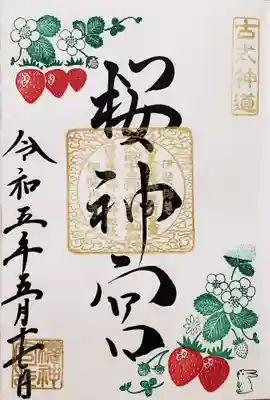 古式神道
桜神宮
令和五年五月十七日